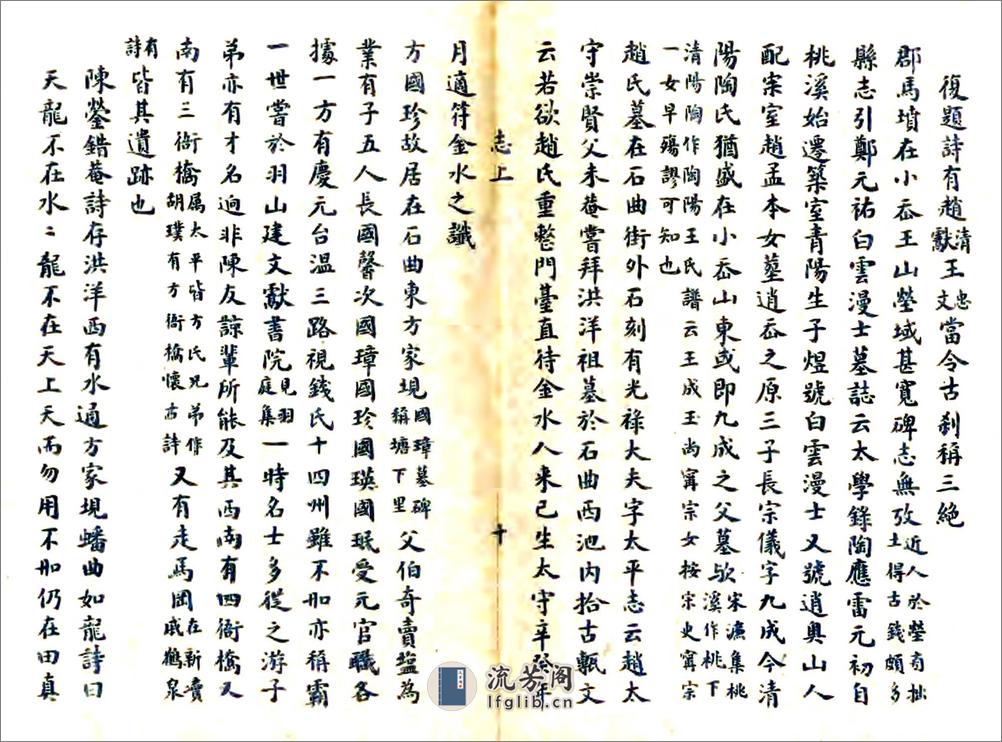 復題詩有趙清獻王忠文當令古刹稱三絕
郡馬墳在小岙王山塋域甚寬碑志無攷近人於塋有拙土得古錢頗多
縣志引鄭元祐白雲漫士墓誌云太學錄陶應雷元初自
桃溪始遷築室青陽生子煜號白雲漫士又號逍奧山人
配宋室趙孟本女墓逍岙之原三子長宗儀字九成今清
陽陶氏猶盛在小岙山東或即九成之父墓歟宋濂集桃溪作桃下
清陽陶作陶陽王氏譜云王成玉尚寗宗女按宗史寗宗一女早殤謬可知也
趙氏墓在石曲街外石刻有光祿大夫字太平志云趙太
守崇賢父未菴嘗拜洪洋祖墓於石曲西池內拾古甎文
云若欲趙氏重整門臺直待金水人来己生太守辛年
志上
十
月適符金水之讖
方國珍故居在石曲東方家垷國璋墓碑稱塘下里父伯奇賣塩為
業有子五人長國馨次國璋國珍國瑛國珉受元官職各
據一方有慶元台温三路視錢氏十四州雖不加亦稱霸
一世嘗於羽山建文獻書院見羽庭集一時名士多從之游子
弟亦有才名迥非陳友諒輩所能及其西南有四衙橋又
南有三衙橋属太平皆方氏兄弟作胡璞有方衙橋懷古詩又有走馬岡在新賣戚鶴泉
有詩皆其遺跡也
陳鎣錯菴詩存洪洋西有水通方家垷蟠曲如龍詩曰
天龍不在水二龍不在天上天而勿用不加仍在田真
流芳阁
lfglib.cn